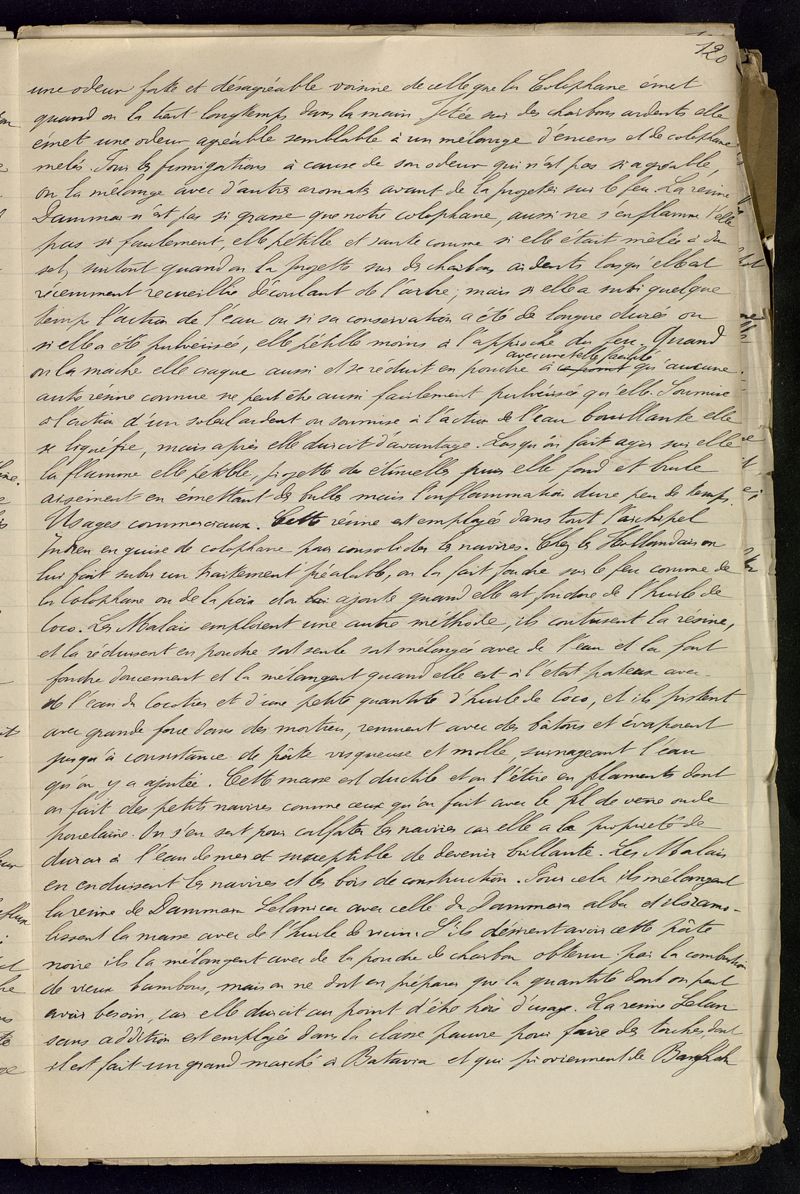 120
une odeur forte et désagréable voisine de celle que la Colophane émet
quand on la tient longtemps dans la main. Jetée sur des charbons ardents elle
émet une odeur agréable semblable à un mélange d'encens et de colophane
melés. Pour les fumigations à cause de son odeur qui n'est pas si agréable,
on la mélange avec d'autres aromates avant de la projeter sur le feu. La résine
Dammar n'est pas si grasse que notre colophane, aussi ne s'enflamme t'elle
pas si facilement, elle pétille et saute comme si elle était mêlée à du
sel, surtout quand on la projette sur des charbons ardents lorsqu'elle est
récemment recueillie découlant de l'arbre; mais si elle a subi quelque
temps l'action de l'eau ou si sa conservation a été de longue durée ou
si elle a été pulvérisée, elle petille moins à l'approche du feu. Quand
avec une telle facilité
on la mache elle craque aussi et se réduit en poudre à ce point qu'aucune
autre résine connue ne peut être aussi facilement pulvérisée qu'elle. Soumise
à l'action d'un soleil ardent ou soumise à l'action de l'eau bouillante elle
se liquéfie, mais après elle durcit d'avantage. Lorsqu'on fait agir sur elle
la flamme elle petille, projette des étincelles puis elle fond et brule
aisement en émettant des bulles mais l'inflammation dure peu de temps.
Usages commerciaux. Cette résine est employée dans tout l'archipel
Indien en guise de colophane pour consolider les navires. Chez les Hollandais on
lui fait subir un traitement préalable, on la fait fondre sur le feu comme de
la Colophane ou de la poix et on lui ajoute quand elle est fondue de l'huile de
Coco. Les Malais emploient une autre méthode, ils contusent la résine,
et la réduisent en poudre soit seule soit mélangée avec de l'eau et la font
fondre doucement et la mélangent quand elle est à l'état pateux avec
de l'eau de Cocotier et d'une petite quantité d'huile de Coco, et ils pistent
avec grande force dans des mortiers, remuent avec des bâtons et évaporent
jusqu'à consistance de pâte visqueuse et molle surnageant l'eau
qu'on y a ajoutée. Cette masse est ductile et on l'étire en filaments dont
on fait des petits navires comme ceux qu'on fait avec le fil de verre ou de
porcelaine. On s'en sert pour calfater les navires car elle a la propriété de
durcir à l'eau de mer et susceptible de devenir brillante. Les Malais
en enduisent les navires et les bois de construction. Pour cela ils mélangent
la résine de Dammara Selanica avec celle de Dammara alba et ils ramo-
lissent la masse avec de l'huile de ricin. S'ils désirent avoir cette pâte
noire ils la mélangent avec de la poudre de charbon obtenu par la combustion
de vieux bambous, mais on ne doit en préparer que la quantité dont on peut
avoir besoin, car elle durcit au point d'être hors d'usage. La résine Selan
sans addition est employée dans la classe pauvre pour faire des torches, dont
il est fait un grand marché à Batavia et qui proviennent de Bangkok